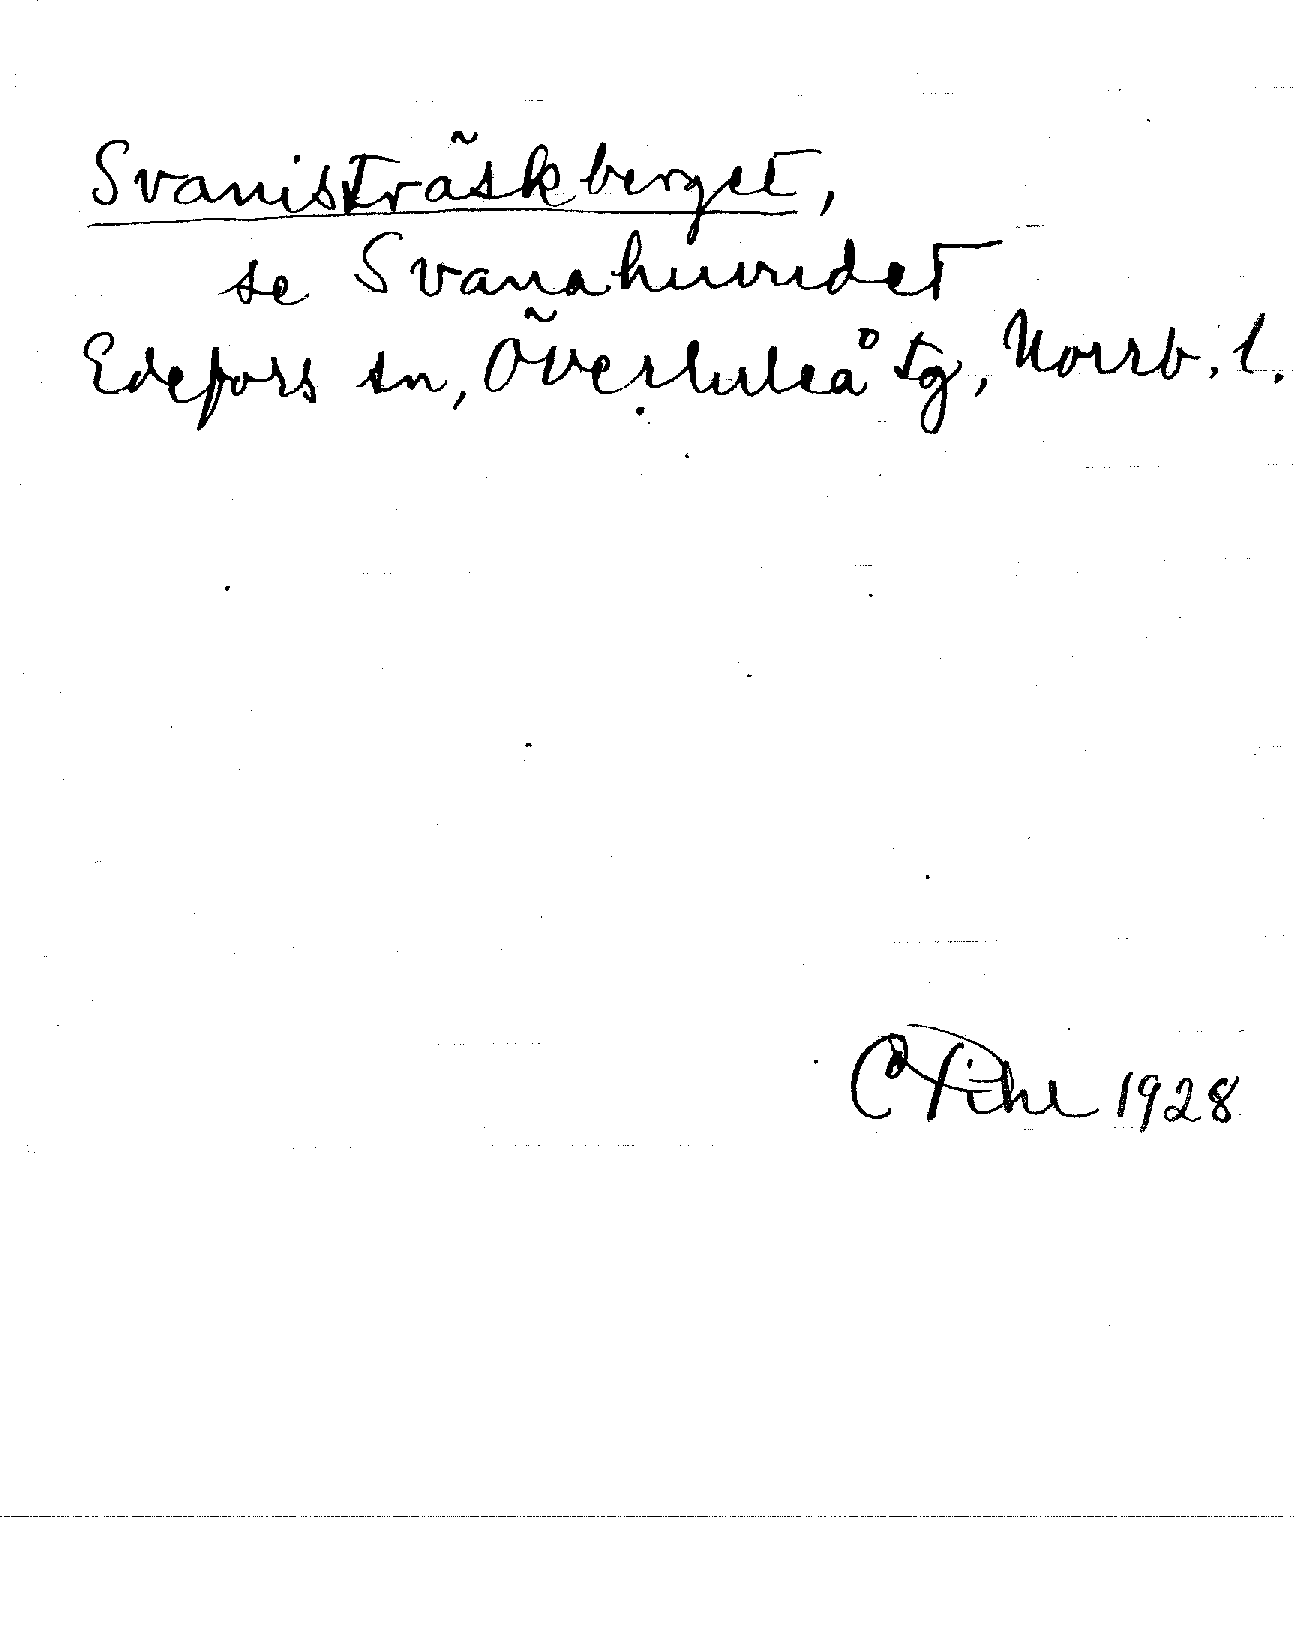 Svanisträskberget,
se Svanahuvudet
Edefors sn, Överluleå tg, Norrb. l.
C Pihl 1928